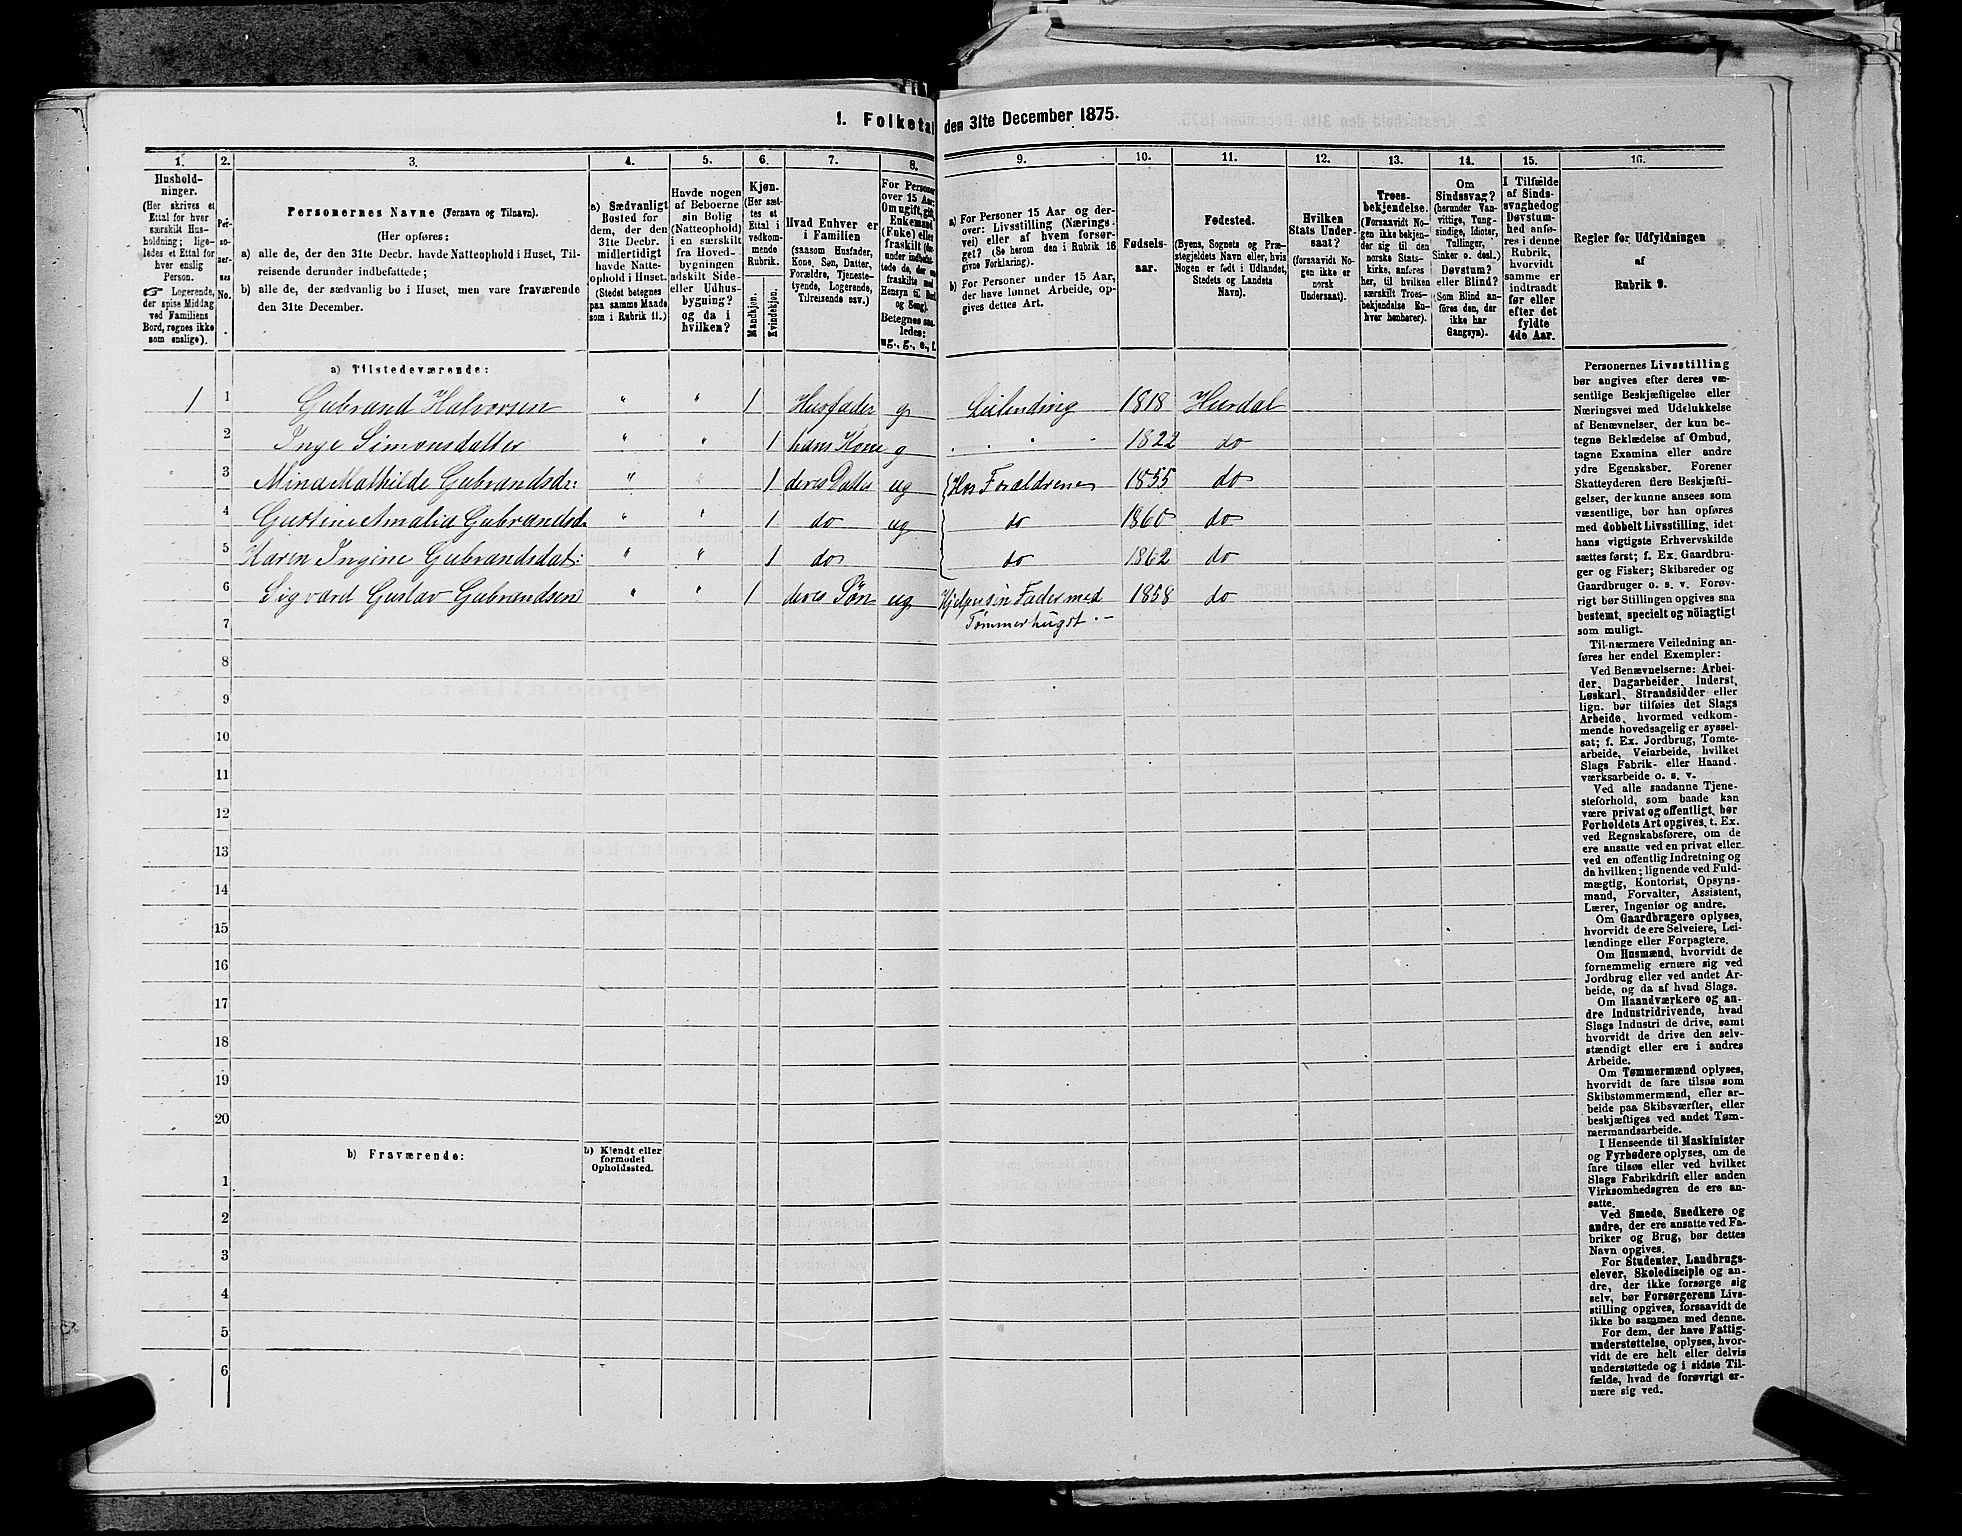 1. Folketal den 31te December 1875.
1. 2. 3. 4. 5. 6. 7. 8. 9. 10. 11. 12. 13. 14. 15. 16.
Hushold-
ninger.
(Her skrives et
Ettal for hver
særskilt Hus-
holdning; lige-
ledes et Ettal for
hver enslig
Person.
☞ Logerende,
der spise Middag
ved Familiens
Bord, regnes ikke
som enslige).
Per-
so-
ner-
nes
No.
Personernes Navne (Fornavn og Tilnavn).
(Her opføres:
a) alle de, der den 31te Decbr. havde Natteophold i Huset, Til-
reisende derunder indbefattede;
b) alle de, der sædvanlig bo i Huset, men vare fraværende
den 31te December.
a) Sædvanligt
Bosted for
dem, der den
31te Decbr.
midlertidigt
havde Natte-
ophold i Huset.
(Stedet betegnes
paa samme Maade
som i Rubrik 11.)
Havde nogen
af Beboerne
sin Bolig
(Natteophold)
i en særskilt
fra Hoved-
bygningen
adskilt Side-
eller Udhus-
bygning?
og da i
hvilken?
Kjøn.
(Her sæt-
tes et
Ettal i
vedkom-
mende
Rubrik.
Mandkjøn.
Kvindekjøn.
Hvad Enhver er
i Familien
(saasom Husfader,
Kone, Søn, Datter,
Forældre, Tjeneste-
tyende, Logerende,
Tilreisende osv.)
For Personer
over 15 Aar:
Om ugift, gift,
Enkemand
(Enke) eller
fraskilt
Betegnes saa-
ledes:
ug., g., e., f.
a) For Personer 15 Aar og der-
over: Livsstilling (Nærings-
vei) eller af hvem forsør-
get? (Se herom den i Rubrik 16
givne Forklaring).
b) For Personer under 15 Aar,
der have lønnet Arbeide, op-
gives dettes Art.
Fødsels-
aar.
Fødested.
(Byens, Sognets og Præ-
stegjeldets Navn eller, hvis
Nogen er født i Udlandet,
Stedets og Landets
Navn).
Hvilken
Stats Under-
saat?
(forsaavidt No-
gen ikke er
norsk
Undersaat).
Troes-
bekjendelse.
(Forsaavidt No-
gen ikke bekjen-
der sig til den
norske Stats-
kirke, anføres
her, til hvilken
særskilt Troes-
bekjendelse En-
hver henhører).
Om
Sindssvag?
(herunder Van-
vittige, Tung-
sindige, Idioter,
Tullinger,
Sinker o. desl.)
Døvstum?
eller Blind?
(Som Blind an-
føres den, der
ikke har
Gangsyn).
I Tilfælde
af Sinds-
svaghed og
Døvstum-
hed anfø-
res i denne
Rubrik,
hvorvidt
samme er
indtraadt
før eller
efter det
fyldte
4de Aar.
Regler for Udfyldningen
af
Rubrik 9.
a) Tilstedeværende:
1 1 Gubrand Halvorsen " " 1 Husfader g Leilending 1818 Hurdal
2 Inge Simonsdatter " " 1 hans Kone g " " " 1822 do
3 Mina Mathilde Gubrandsdr: " " 1 deres Datter ug Hos Forældrene 1855 do
4 Gustine Amalia Gubrandsd. " " 1 do ug do 1860 do
5 Karen Ingine Gubrandsdat: " " 1 do do 1862 do
6 Sigvard Gustav Gubrandsen " " 1 deres Søn ug Hjelper sin Fader med 1858 do
7 Tømmerhugst.
8
9
10
11
12
13
14
15
16
17
18
19
20
b) Fraværende:
b) Kjendt eller
formodet
Opholdssted.
1
2
3
4
5
6
Personernes Livsstilling
bør angives efter deres væ-
sentlige Beskjæftigelse eller
Næringsvei med Udelukkelse
af Benævnelser, der kun be-
tegne Beklædelse af Ombud,
tagne Examina eller andre
ydre Egenskaber. Forener
Skatteyderen flere Beskjæfti-
gelser, der kunne ansees som
væsentlige, bør han opføres
med dobbelt Livsstilling, idet
hans vigtigste Erhvervskilde
sættes først; f. Ex. Gaardbru-
ger og Fisker; Skibsreder og
Gaardbruger o. s. v. Forøv-
rigt bør Stillingen opgives saa
bestemt, specielt og nøiagtigt
som muligt.
Til nærmere Veiledning an-
føres her endel Exempler:
Ved Benævnelserne: Arbei-
der, Dagarbeider, Inderst,
Løskarl, Strandsidder eller
lign. bør tilføies det Slags
Arbeide, hvormed vedkom-
mende hovedsagelig er syssel-
sat; f. Ex. Jordbrug, Tomte-
arbeide, Veiarbeide, hvilket
Slags Fabrik- eller Haand-
værksarbeide o. s. v.
Ved alle saadanne Tjene-
steforhold, som baade kan
være privat og offentligt, bør
Forholdets Art opgives, t. Ex.
ved Regnskabsførere, om de
ere ansatte ved en privat eller
ved en offentlig Indretning og
da hvilken; lignende ved Fuld-
mægtig, Kontorist, Opsyns-
mand, Forvalter, Assistent,
Lærer, Ingeniør og andre.
Om Gaardbrugere oplyses,
hvorvidt de ere Selveiere, Lei-
lændinge eller Forpagtere.
Om Husmænd, hvorvidt de
fornemmelig ernære sig ved
Jordbrug eller ved andet Ar-
beide, og da af hvad Slags.
Om Haandværkere og an-
dre Industridrivende, hvad
Slags Industri de drive, samt
hvorvidt de drive den selv-
stændigt eller ere i andres
Arbeide.
Om Tømmermænd oplyses,
hvorvidt de fare tilsøs som
Skibstømmermænd, eller ar-
beide paa Skibsværfter, eller
beskjæftiges ved andet Tøm-
mermandsarbeide.
I Henseende til Maskinister
og Fyrbødere oplyses, om de
fare tilsøs eller ved hvilket
Slags Fabrikdrift eller anden
Virksomhedsgren de ere an-
satte.
Ved Smede, Snedkere og
andre, der ere ansatte ved Fa-
briker og Brug, bør dettes
Navn opgives.
For Studenter, Landbrugs-
elever, Skoledisciple og an-
dre, der ikke forsørge sig
selv, bør Forsørgerens Livs-
stilling opgives, forsaavidt de
ikke bo sammen med denne.
For dem, der have Fattig-
understøttelse, oplyses, hvor-
vidt de ere helt eller delvis
understøttede og i sidste Til-
fælde, hvad de forøvrigt er-
nære sig ved.